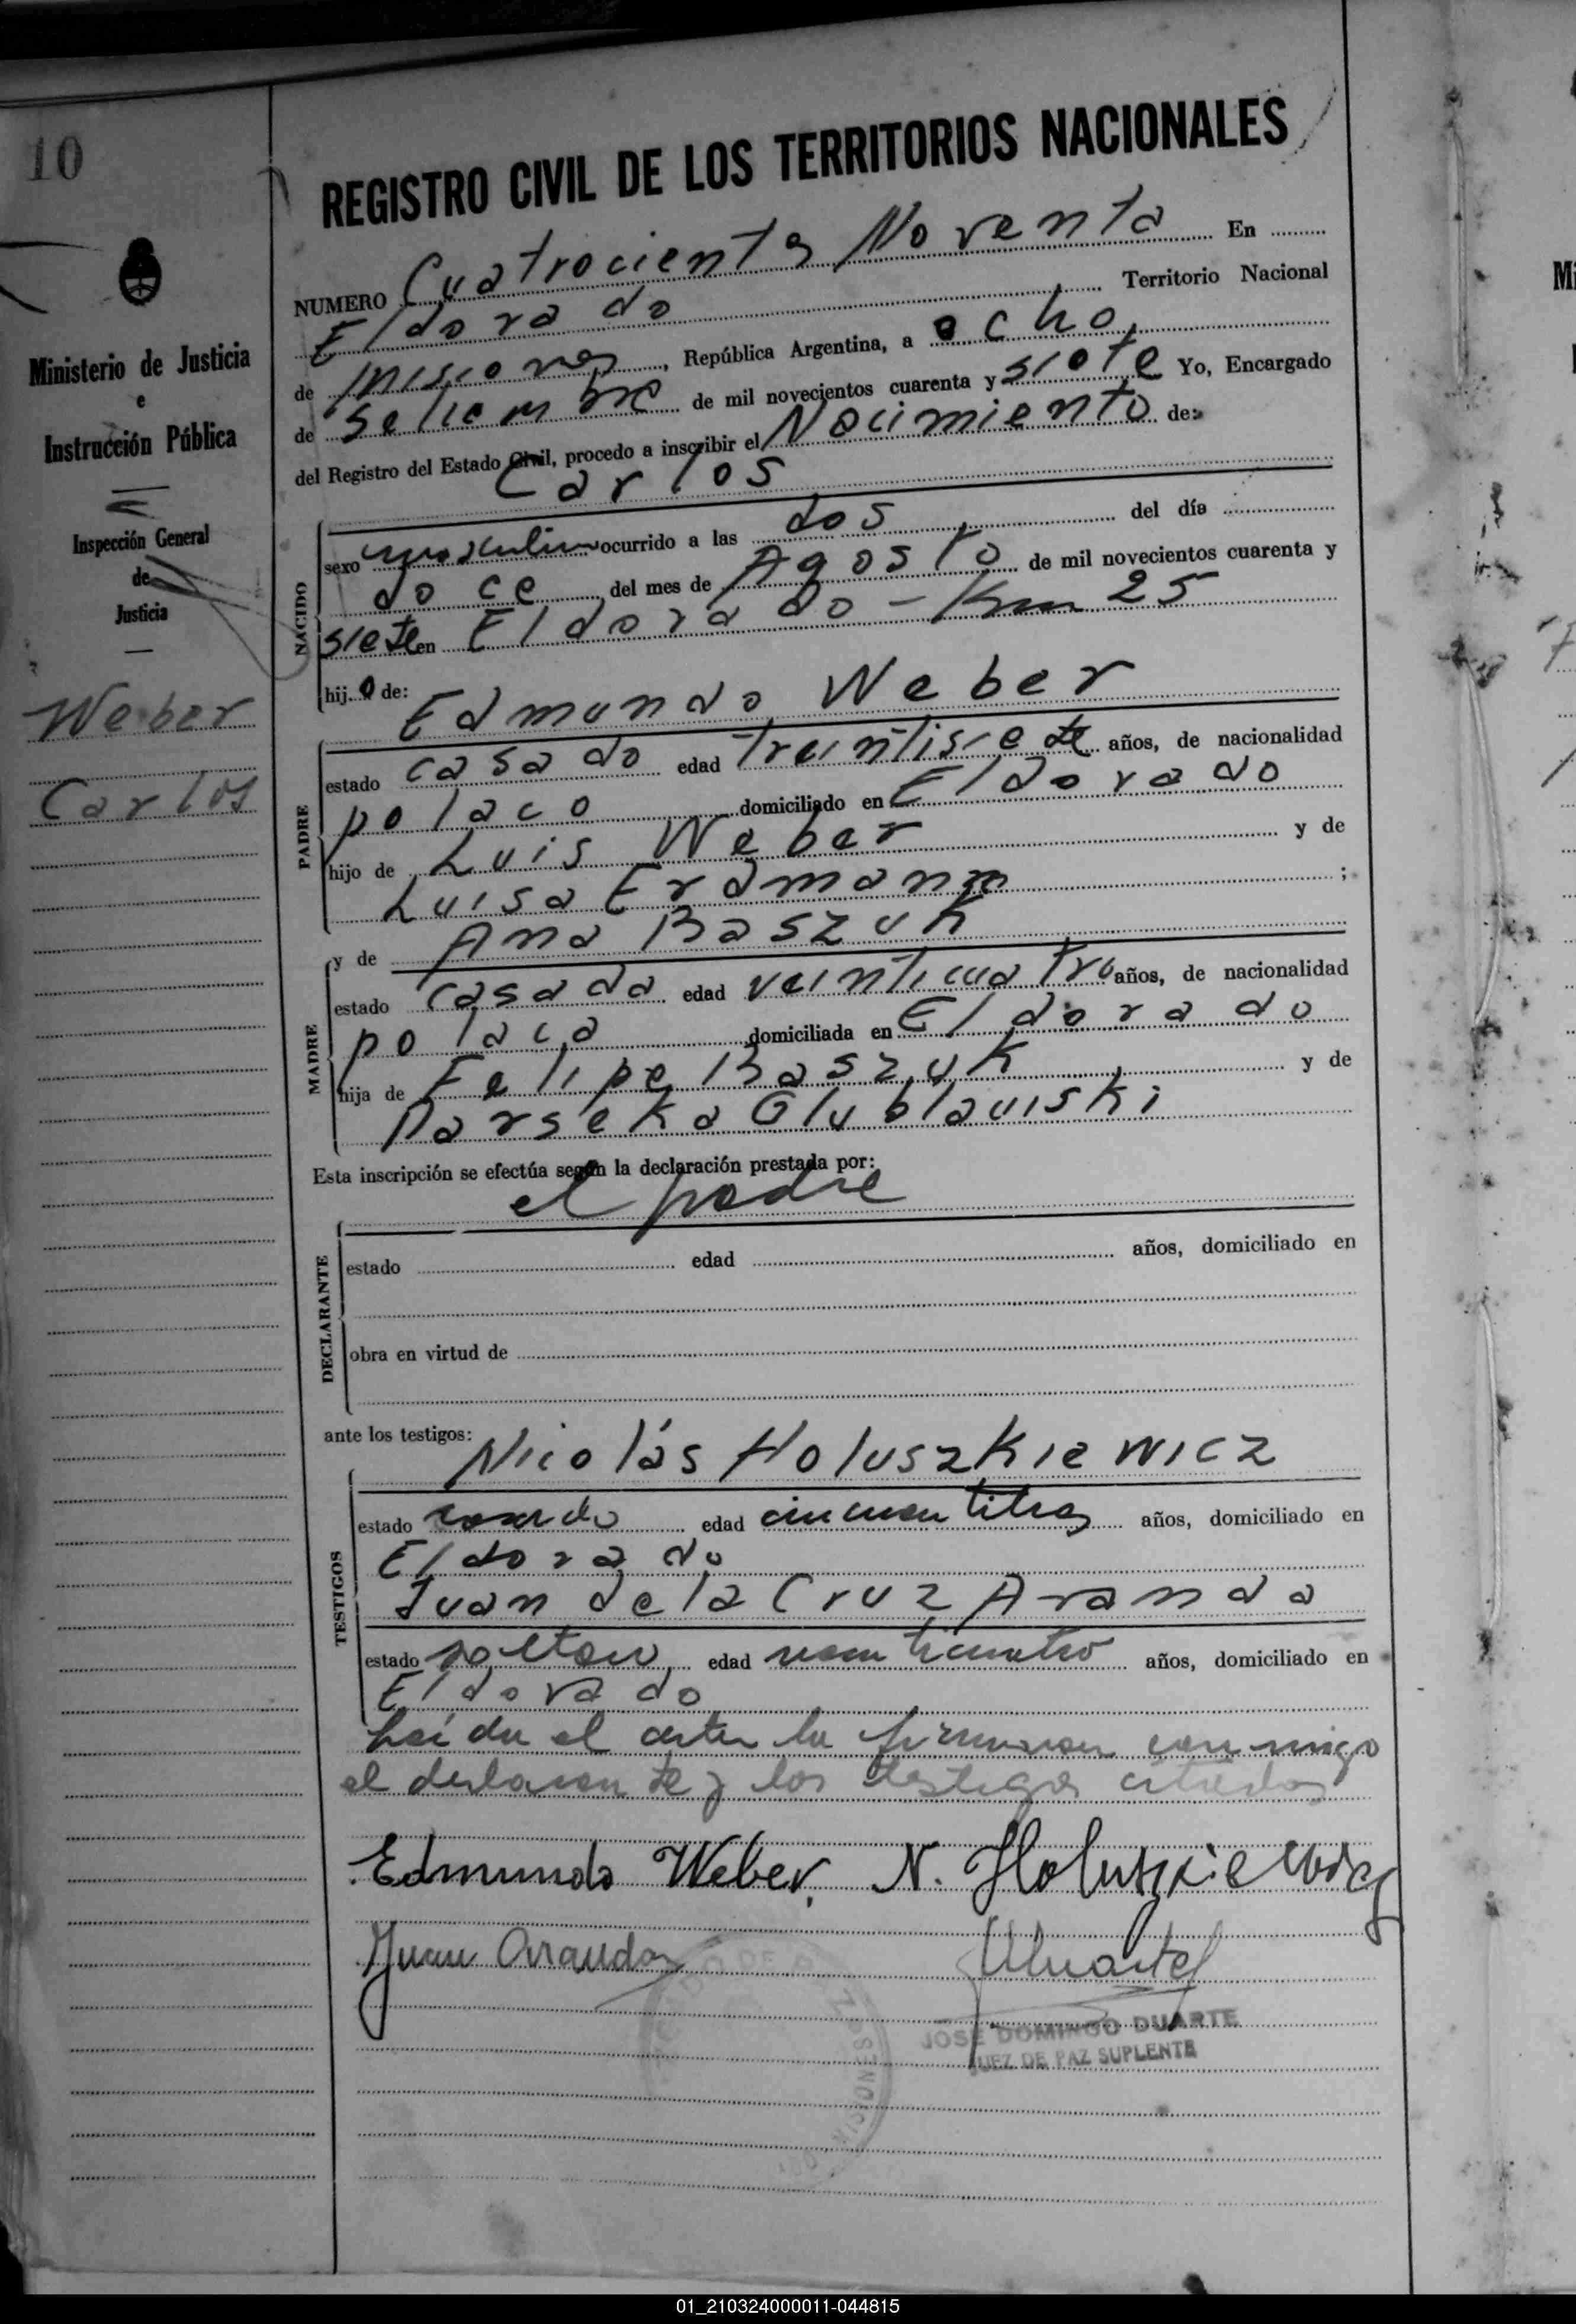 10
REGISTRO CIVIL DE LOS TERRITORIOS NACIONALES
NUMERO Cuatrocientos Noventa En
Eldorado Territorio Nacional
de Misiones, República Argentina, a ocho
de Setiembre de mil novecientos cuarenta y siete Yo, Encargado
del Registro del Estado Civil, procedo a inscribir el Nacimiento de:
Carlos
NACIDO
sexo masculino ocurrido a las dos del día
doce del mes de Agosto de mil novecientos cuarenta y
siete en Eldorado - Km 25
hij.o de:
Edmundo Weber
PADRE
estado casado edad treintisiete años, de nacionalidad
polaco domiciliado en Eldorado
hijo de Luis Weber y de
Luisa Erdmann ;
y de Ana Baszuk
MADRE
estado casada edad veinticuatro años, de nacionalidad
polaca domiciliada en Eldorado
hija de Felipe Baszuk y de
Parseka Glublauiski
Esta inscripción se efectúa según la declaración prestada por:
el padre
DECLARANTE
estado edad años, domiciliado en
obra en virtud de
ante los testigos:
Nicolás Holuszkiewicz
TESTIGOS
estado casado edad cincuentitres años, domiciliado en
Eldorado
Juan de la Cruz Aranda
estado soltero edad veinticuatro años, domiciliado en
Eldorado
Leída el acta la firmaron conmigo
el declarante y los testigos citados
Edmundo Weber, N. Holuszkiewicz
Juan Aranda
JOSE DOMINGO DUARTE
JUEZ DE PAZ SUPLENTE
Ministerio de Justicia
e
Instrucción Pública
Inspección General
de
Justicia
Weber
Carlos
01_210324000011-044815